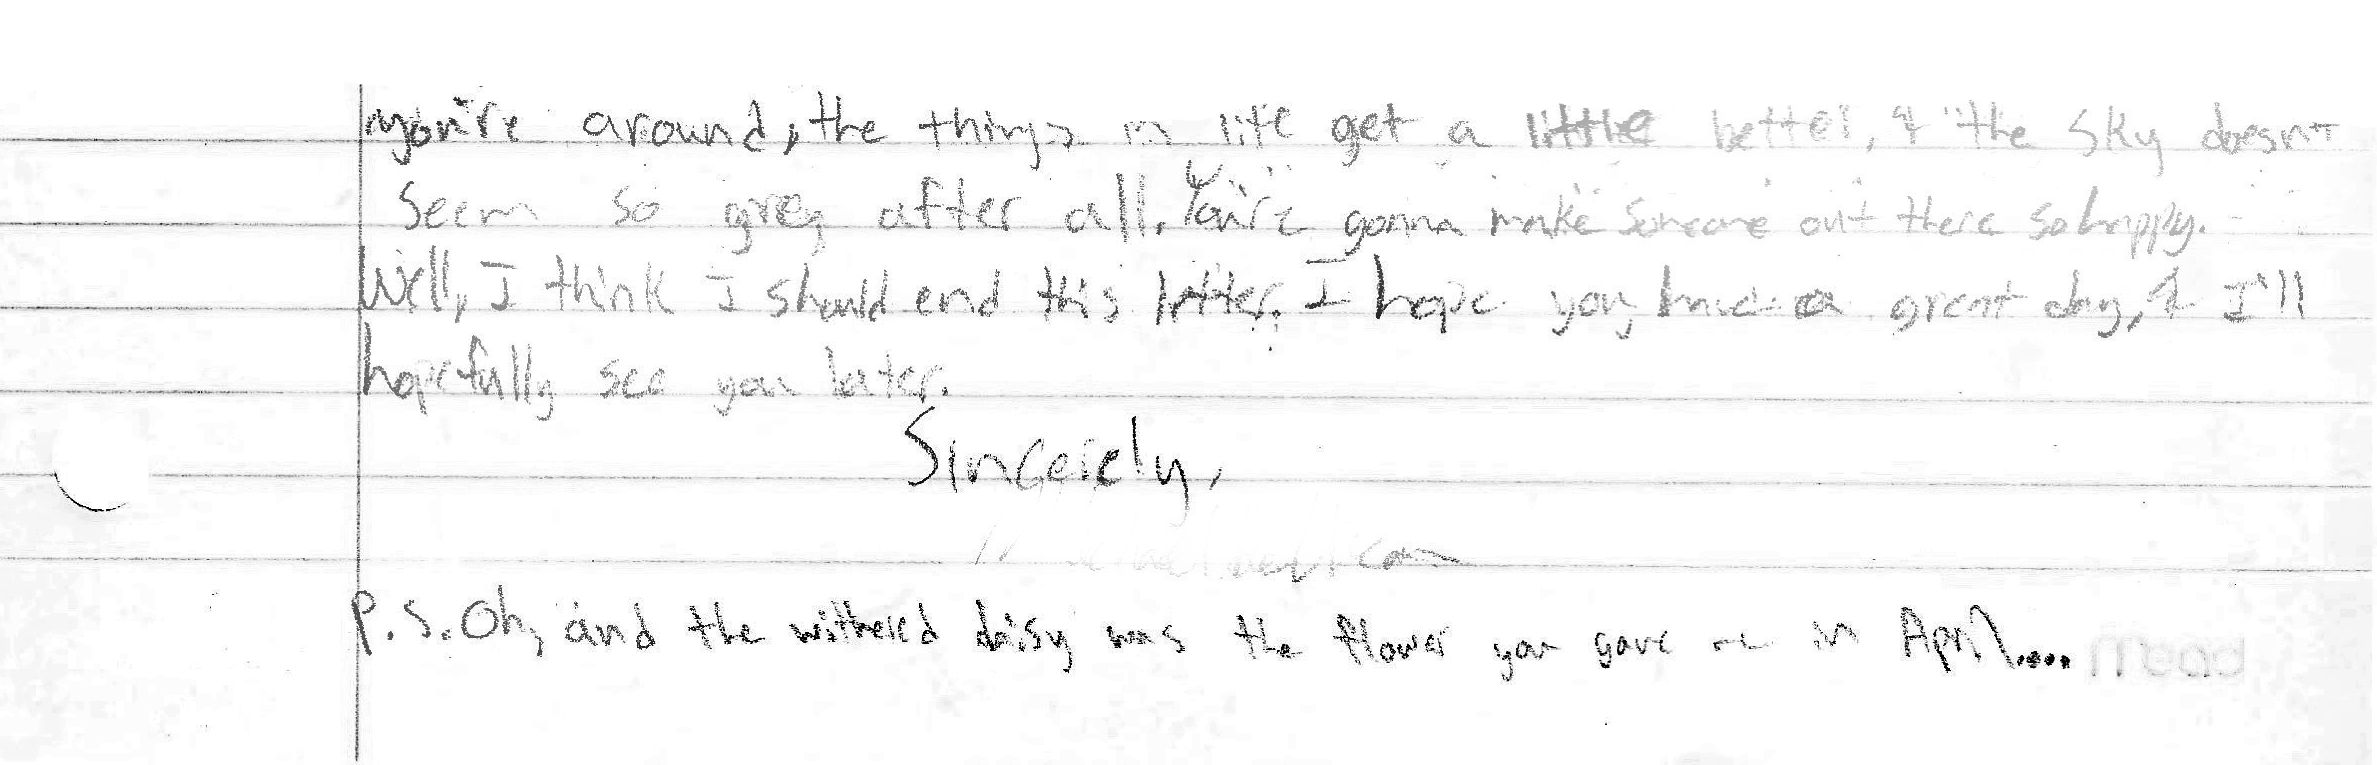 you're around, the things in life get a little better, & the sky doesn't
seem so grey after all. You're gonna make someone out there so happy.
Well, I think I should end this letter. I hope you have a great day, & I'll
hopefully see you later.
Sincerely,
P.S. Oh, and the withered daisy was the flower you gave me in April....
Mead